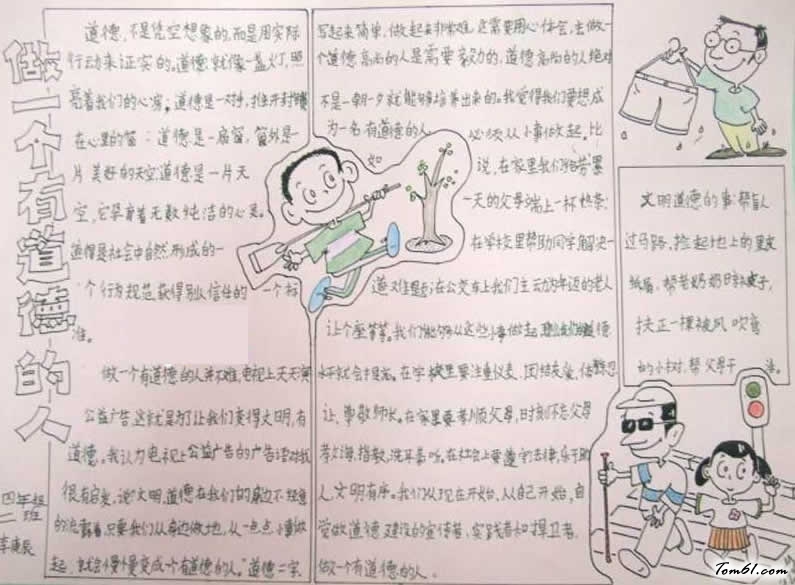 做一个有道德的人
四年级
二班
道德,不是凭空想象的,而是用实际
行动来证实的。道德就像一盏灯,照
亮着我们的心房;道德是一
在心里的窗;道德是一扇窗,窗外是一
片美好的天空;道德是一片天
空,它孕育着无数纯洁的心灵。
道德是社会中自然形成的一
个行为规范,获得别人信任的一个标
准。
做一个有道德的人并不难,电视上天天演
公益广告,这就是为了让我们变得文明,有
道德。我认为电视上公益广告的广告语对我
很有启发,说“文明,道德在我们的身边不经意
的流露着,只要我们从身边做地,从一点点小事做
起,就会慢慢变成一个有道德的人。”道德二字,
写起来简单,做起来非常难,还需要用心体会,去做一
个道德高尚的人是需要毅力的,道德高尚的人绝对
不是一朝一夕就能够培养出来的。我觉得我们要想成
为一名有道德的人 必须从小事做起,比
如 说,在家里我们给劳累
一天的父母端上一杯热茶;
在学校里帮助同学解决一
道难题;在公交车上我们主动为年迈的老人
让个座等等。我们能够从这些小事做起,那么我们的道德
水平就会提高。在学校里要注重仪表,团结友爱,
让,尊敬师长。在家里要孝顺父母,时刻不忘父母
教诲
在社会上要遵守法律,乐于助
人,文明有序。我们从现在开始,从自己开始,自
觉做道德建设的宣传者,实践者和捍卫者,
做一个有道德的人。
文明道德的事:帮盲人
过马路,捡起地上的
纸屑,帮老奶奶
扶正一棵被风吹弯
的小树,帮父母干 活。
Tom61.com